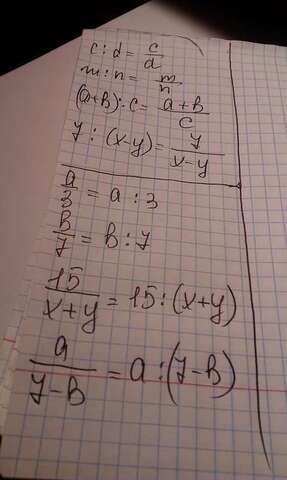 c : d = c/d
m : n = m/n
(a+b) : c = a+b/c
7 : (x-y) = 7/x-y
a/3 = a : 3
b/7 = b : 7
15/x+y = 15 : (x+y)
a/7-b = a : (7-b)